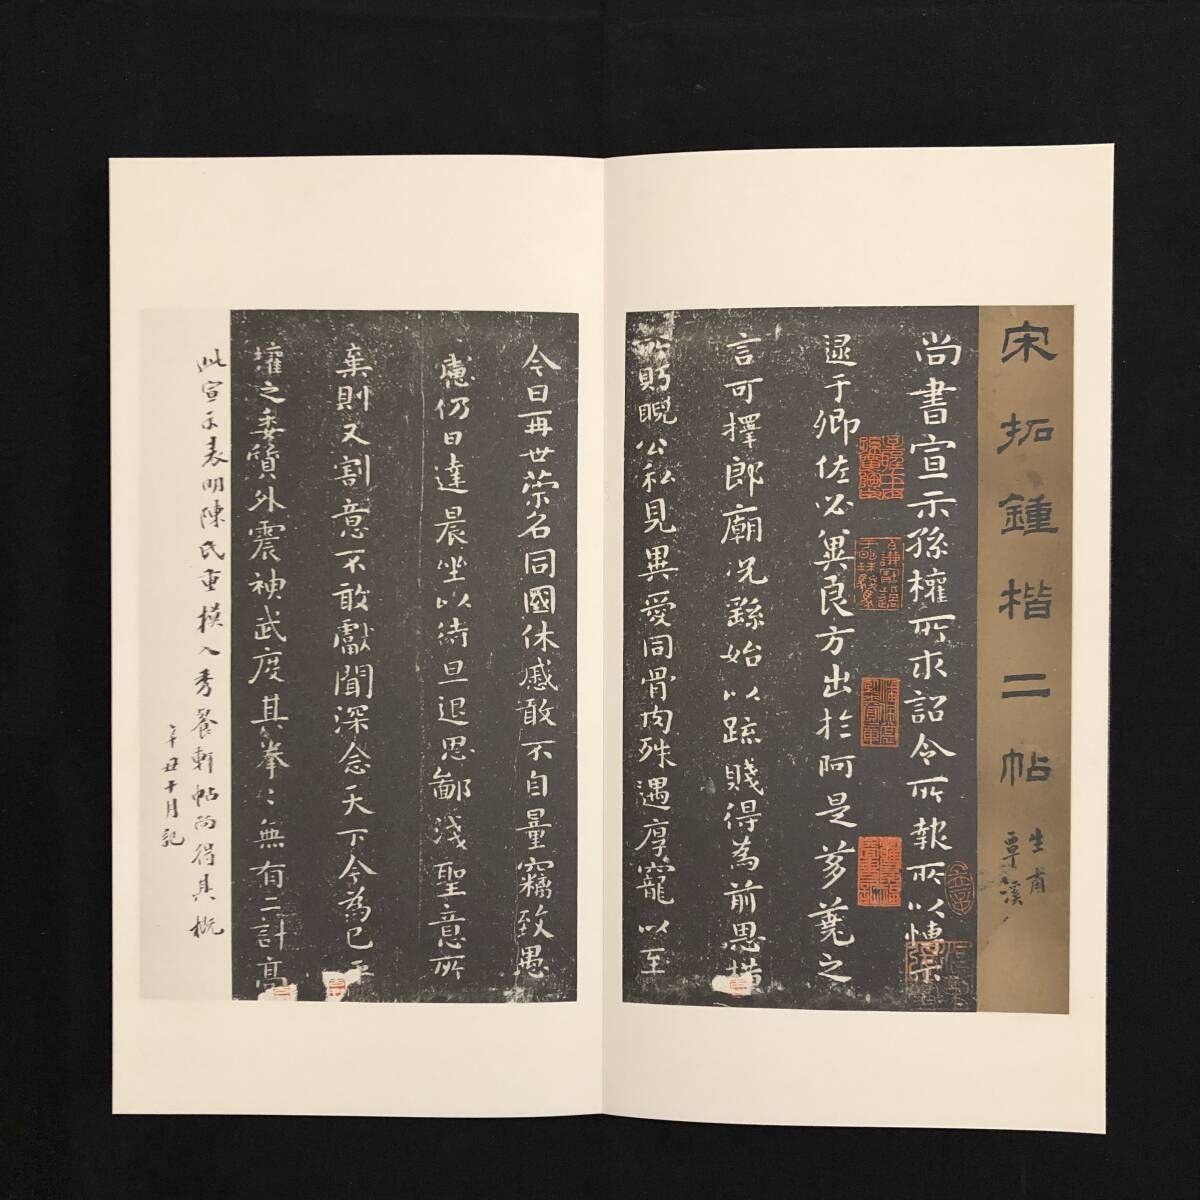 宋拓鍾楷二帖
生甫
覃溪
尚書宣示孫權所求詔令所報所以博示
逮于卿佐必冀良方出於阿是芻蕘之
言可擇郎廟況繇始以疏賤得為前恩橫
所眄睨公私見異愛同骨肉殊遇厚寵以至
今日再世榮名同國休慼敢不自量竊致愚
慮仍日達晨坐以待旦退思鄙淺聖意所
棄則又割意不敢獻聞深念天下今為已平
權之委質外震神武度其拳〻無有二計高
此宣示表明陳氏重摸入秀餐軒帖而得其概
辛丑十月記